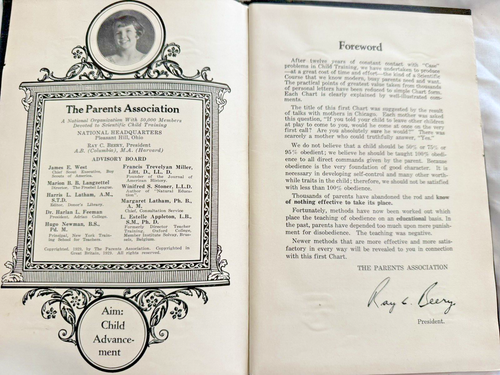 The Parents Association
A National Organization With 50,000 Members
Devoted to Scientific Child Training
NATIONAL HEADQUARTERS
Pleasant Hill, Ohio
RAY C. BEERY, President
A.B. (Columbia), M.A. (Harvard)
ADVISORY BOARD
James E. West
Chief Scout Executive, Boy
Scouts of America.
Marion B. D. Langzettel
Director, The Froebel League.
Harris L. Latham, A.M.,
S.T.D.
Editor, Doner's Library.
Dr. Harlan L. Feeman
President, Adrian College
Hugo Newman, B.S.,
Pd. M.
Principal, New York Train-
ing School for Teachers.
Francis Trevelyan Miller,
Litt. D., LL. D.
Founder of the Journal of
American History.
Winifred S. Stoner, L.L.D.
Author of "Natural Educa-
tion"
Margaret Latham, Ph. B.,
A. M.
Chief, Consultation Service
L. Estelle Appleton, L.B.
S.M., Ph. D.
Formerly Director Teacher
Training, Oxford College.
Speaker Institute Solvay Brussels,
Belgium.
Copyrighted, by The Parents Association. Copyrighted in
Great Britain, All rights reserved.
Aim:
Child
Advance-
ment
Foreword
After twelve years of constant contact with "Case"
problems in Child Training, we have undertaken to produce
—at a great cost of time and effort—the kind of a Scientific
Course that we know modern, busy parents need and want.
The practical points of greatest value taken from thousands
of personal letters have been reduced to simple Chart form.
Each Chart is clearly explained by well-illustrated com-
ments.
The title of this first Chart was suggested by the result
of talks with mothers in Chicago. Each mother was asked
this question, "If you told your child to leave other children
at play to come to you, would he come at once on the very
first call? Are you absolutely sure he would?" There was
scarcely a mother who could truthfully answer, "Yes."
We do not believe that a child should be 50% or 75% or
95% obedient; we believe he should be taught 100% obedi-
ence to all direct commands given by the parent. Because
obedience is the very foundation of good character. It is
necessary in developing self-control and many other worthy-
while traits in the child; therefore, we should not be satisfied
with less than 100% obedience.
Thousands of parents have abandoned the rod and know
of nothing effective to take its place.
Fortunately, methods have been worked out which
place the teaching of obedience on an educational basis. In
the past, parents have depended too much upon mere punish-
ment for disobedience. The teaching was negative.
Newer methods that are more effective and more satis-
factory in every way will be revealed to you in connection
with this first Chart.
THE PARENTS ASSOCIATION
Ray C. Beery
President.